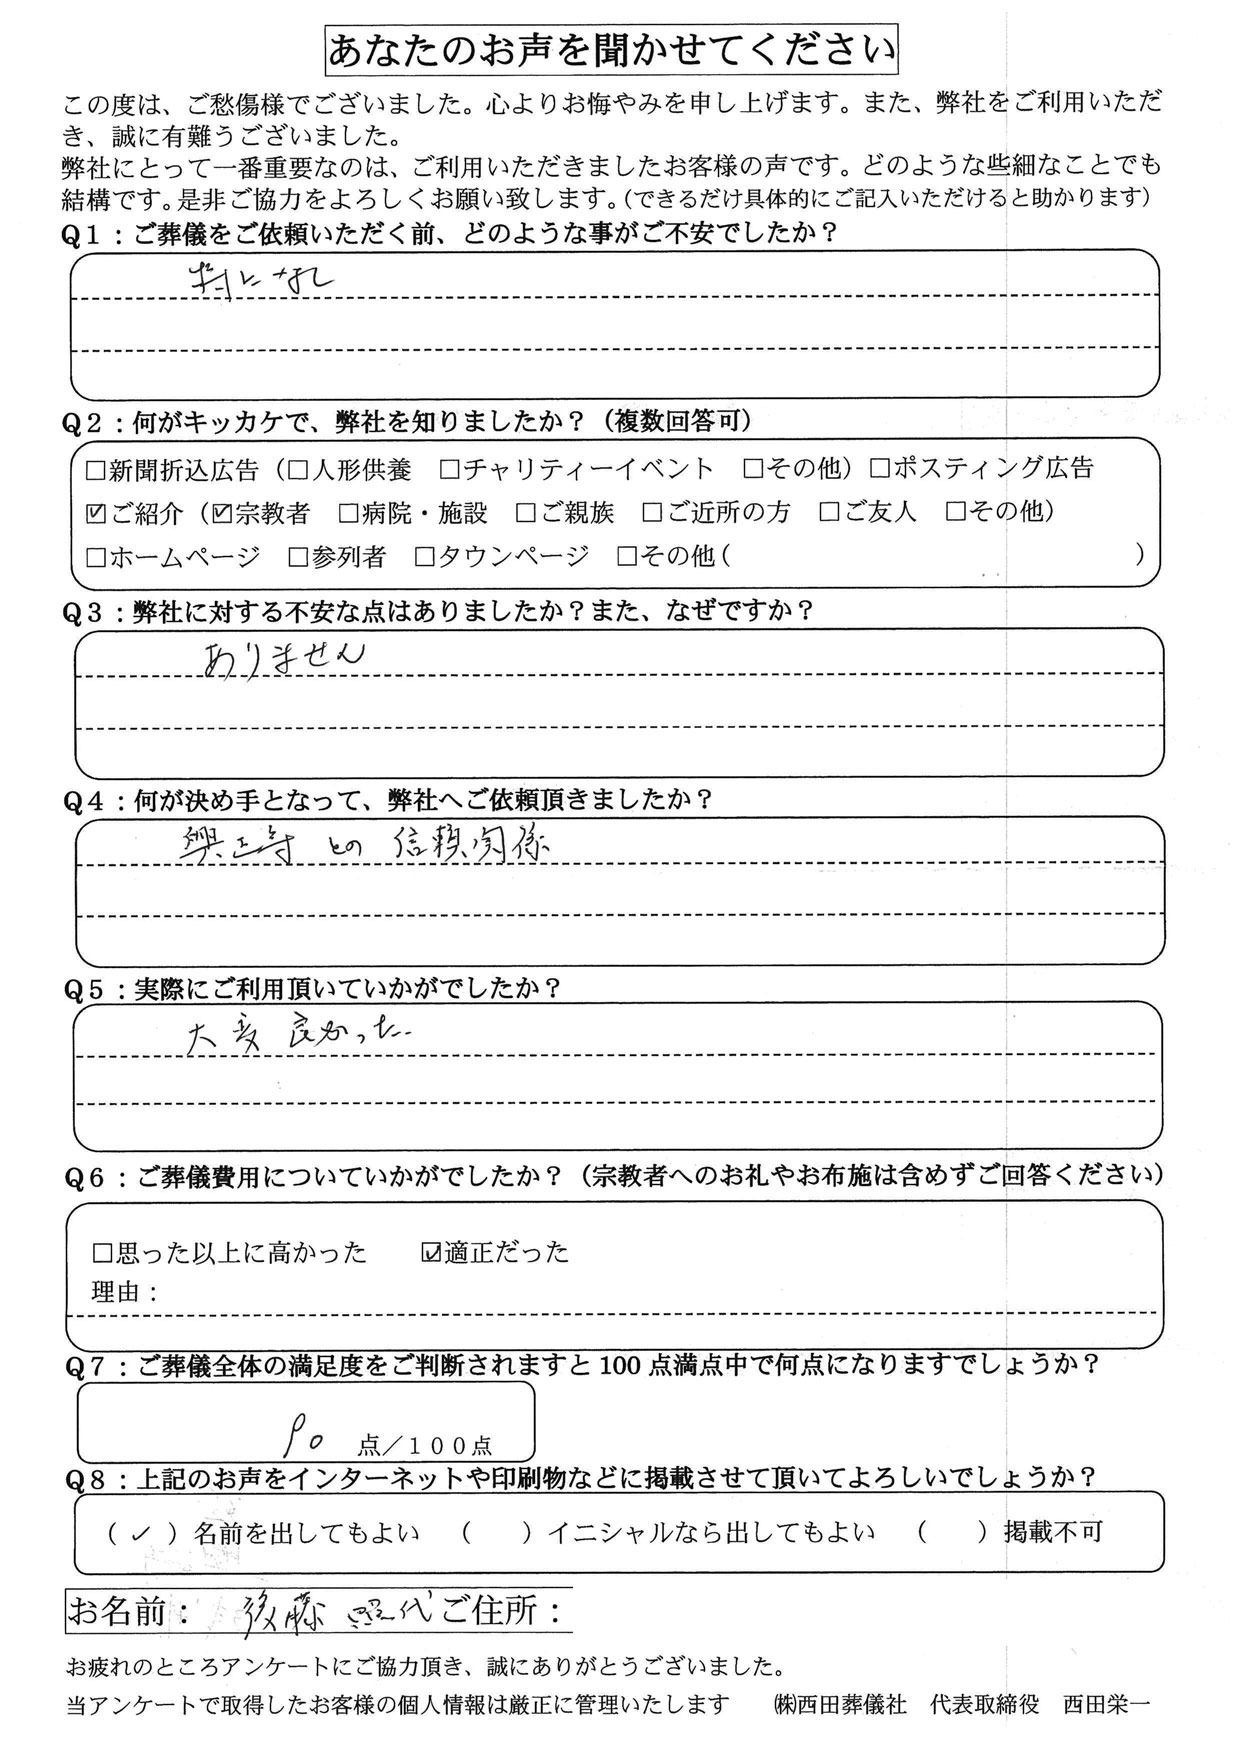 あなたのお声を聞かせてください
この度は、ご愁傷様でございました。心よりお悔やみを申し上げます。また、弊社をご利用いただ
き、誠に有難うございました。
弊社にとって一番重要なのは、ご利用いただきましたお客様の声です。どのような些細なことでも
結構です。是非ご協力をよろしくお願い致します。(できるだけ具体的にご記入いただけると助かります)
Q1:ご葬儀をご依頼いただく前、どのような事がご不安でしたか?
特になし
Q2:何がキッカケで、弊社を知りましたか?(複数回答可)
□新聞折込広告(□人形供養 □チャリティーイベント □その他)□ポスティング広告
☑ご紹介(☑宗教者 □病院・施設 □ご親族 □ご近所の方 □ご友人 □その他)
□ホームページ □参列者 □タウンページ □その他( )
Q3:弊社に対する不安な点はありましたか?また、なぜですか?
ありません
Q4:何が決め手となって、弊社へご依頼頂きましたか?
興正寺との信頼関係
Q5:実際にご利用頂いていかがでしたか?
大変良かった
Q6:ご葬儀費用についていかがでしたか?(宗教者へのお礼やお布施は含めずご回答ください)
□思った以上に高かった ☑適正だった
理由:
Q7:ご葬儀全体の満足度をご判断されますと100点満点中で何点になりますでしょうか?
90 点/100点
Q8:上記のお声をインターネットや印刷物などに掲載させて頂いてよろしいでしょうか?
(✓)名前を出してもよい ( )イニシャルなら出してもよい ( )掲載不可
お名前: 後藤 照代 ご住所:
お疲れのところアンケートにご協力頂き、誠にありがとうございました。
当アンケートで取得したお客様の個人情報は厳正に管理いたします ㈱西田葬儀社 代表取締役 西田栄一